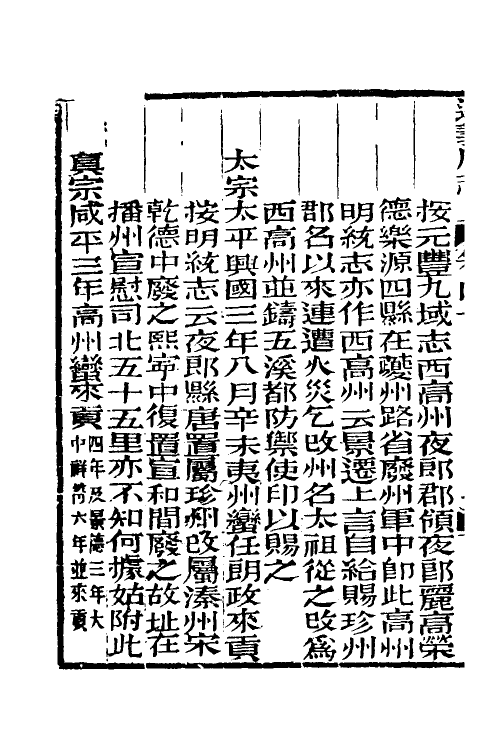 按元豐九域志西高州夜郎郡領夜郎麗高榮
德樂源四縣在夔州路省廢州軍中卽此高州
明統志亦作西高州云景遷上言自給賜珍州
郡名以來連遭火災乞改州名太祖從之改為
西高州並鑄五溪都防禦使印以賜之
太宗太平興國三年八月辛未夷州蠻任朗政來貢
按明統志云夜郎縣唐置屬珍州改屬溱州宋
乾德中廢之熙寧中復置宣和間廢之故址在
播州宣慰司北五十五里亦不知何據姑附此
眞宗咸平三年高州蠻來貢四年及景德三年大
中祥符六年並來貢